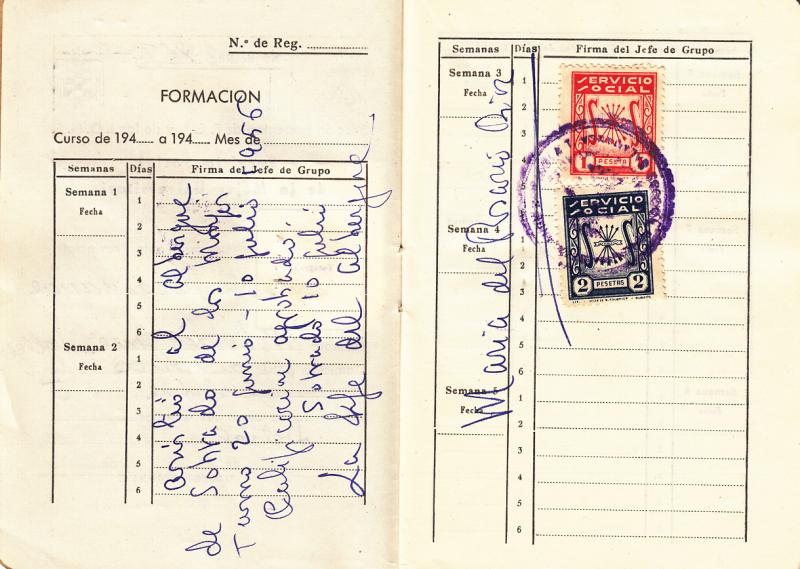 N.º de Reg.
FORMACION
Curso de 194 a 194 Mes de
Semanas Días Firma del Jefe de Grupo
Semana 1
Fecha
1
2
3
4
5
6
Semana 2
Fecha
1
2
3
4
5
6
Asistió al albergue
de Sobrado de los Monjes
Turno 20 junio - 10 julio 1956
Calificación aprobado
Sobrado 10 julio
La Jefe del albergue
Semanas Días Firma del Jefe de Grupo
Semana 3
Fecha
1
2
3
4
5
6
Semana 4
Fecha
1
2
3
4
5
6
Semana 5
Fecha
1
2
3
4
5
6
Maria del Rosario
SERVICIO
SOCIAL
1 PESETA 1
SERVICIO
SOCIAL
2 PESETAS 2